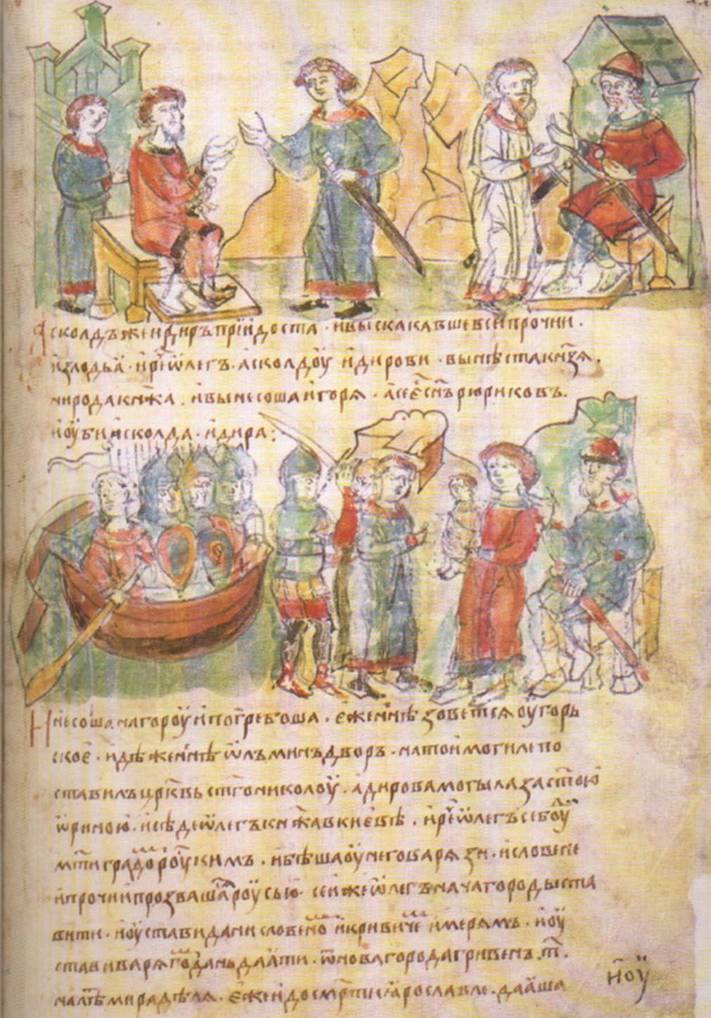 Асколдъ же и диръ прїидоста · и выскакавше вси прочии ·
излодьа · и рече ѡлегъ · асколдоу и дирови · вы нѣста кнѧзѧ ·
ни рода кнѧжа · и вынесоша игорѧ · а се есть снъ рюриковъ ·
и оубиша асколда · и дира :
И несоша на гороу и погребоша · еже нынѣ зоветсѧ оугорь
ское · идѣже нынѣ ѡлъминъ дворъ · на тои могиле по
ставилъ црквь стго николоу · а дирова могыла за стою
ѡриною · и сѣде ѡлегъ кнѧжа в киевѣ · и рече ѡлегъ се боуди
мти градо роускимъ · и бѣша оу него варѧзи · и словене
и прочии прозвашасѧ роусью · сеи же ѡлегъ нача городы ста
вити · и оустави дани словено и кривиче и мерѧмъ · и оу
стави варѧго дань даꙗти · ѿ новагорода гривенъ · т҃ ·
на лѣ мира дѣлѧ · еже и до смрти ꙗрославле · даꙗша
и оу